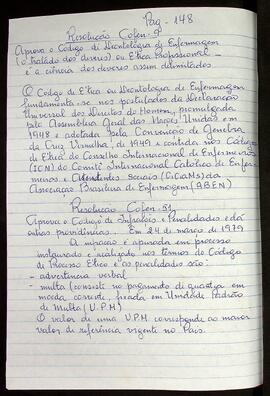 Pag - 148
Resolução Cofen - 9
Aprova o Código de Deontologia de Enfermagem
(o Tratado dos deveres) ou Ética Profissional
é a ciência dos deveres assim delimitados
O Código de Ética ou Deontologia de Enfermagem
fundamenta-se nos postulados da Declaração
Universal dos Direitos do Homem, promulgada
pela Assembléia Geral das Nações Unidas em
1948 e adotada pela Convenção de Genebra
da Cruz Vermelha, de 1949 e contida nos Códigos
de Ética do Conselho Internacional de Enfermeiras
(ICN) do Comitê Internacional Católico de Enfer
meiras e Assistentes Sociais (CICIAMS) da
Associação Brasileira de Enfermagem (ABEN)
Resolução Cofen - 51
Aprova o Código de Infrações e Penalidades e dá
outras providências. Em 24 de março de 1979
A infração é apurada em processo
instaurado e realizado nos termos do Código
de Processo Ético e as penalidades são:
- advertência verbal
- multa (consiste no pagamento de quantia em
moeda corrente, fixada em Unidade Padrão
de Multa (U.P.M)
O valor de uma U.P.M corresponde ao maior
valor de referência vigente no País.